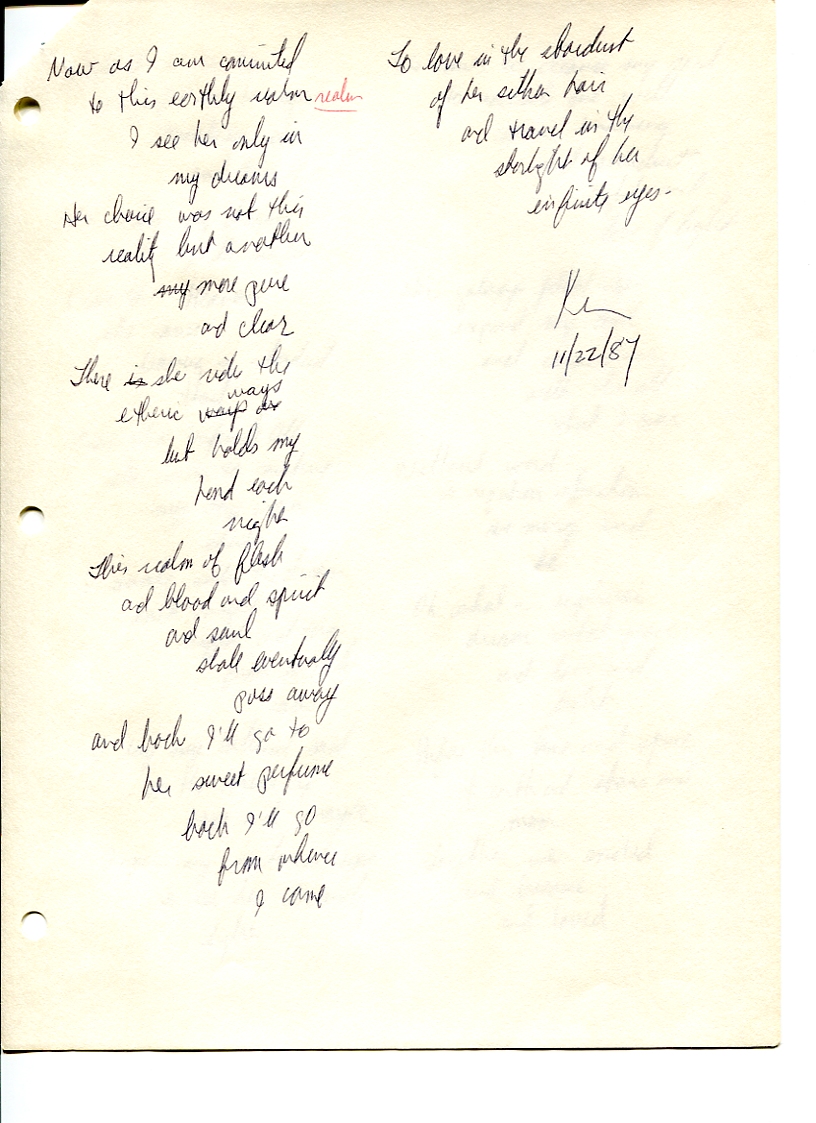 Now as I am commited
to this earthly realm realm
I see her only in
my dreams
Her choice was not this
reality but another
my more pure
and clear
There is she rides the
ways
etheric
but holds my
hand each
night
This realm of flesh
and blood and spirit
and soul
shall eventually
pass away
and back I'll go to
her sweet perfume
back I'll go
from whence
I came
To love in the stardust
of her silken hair
and travel in the
starlight of her
infinite eyes.
Ken
11/22/87